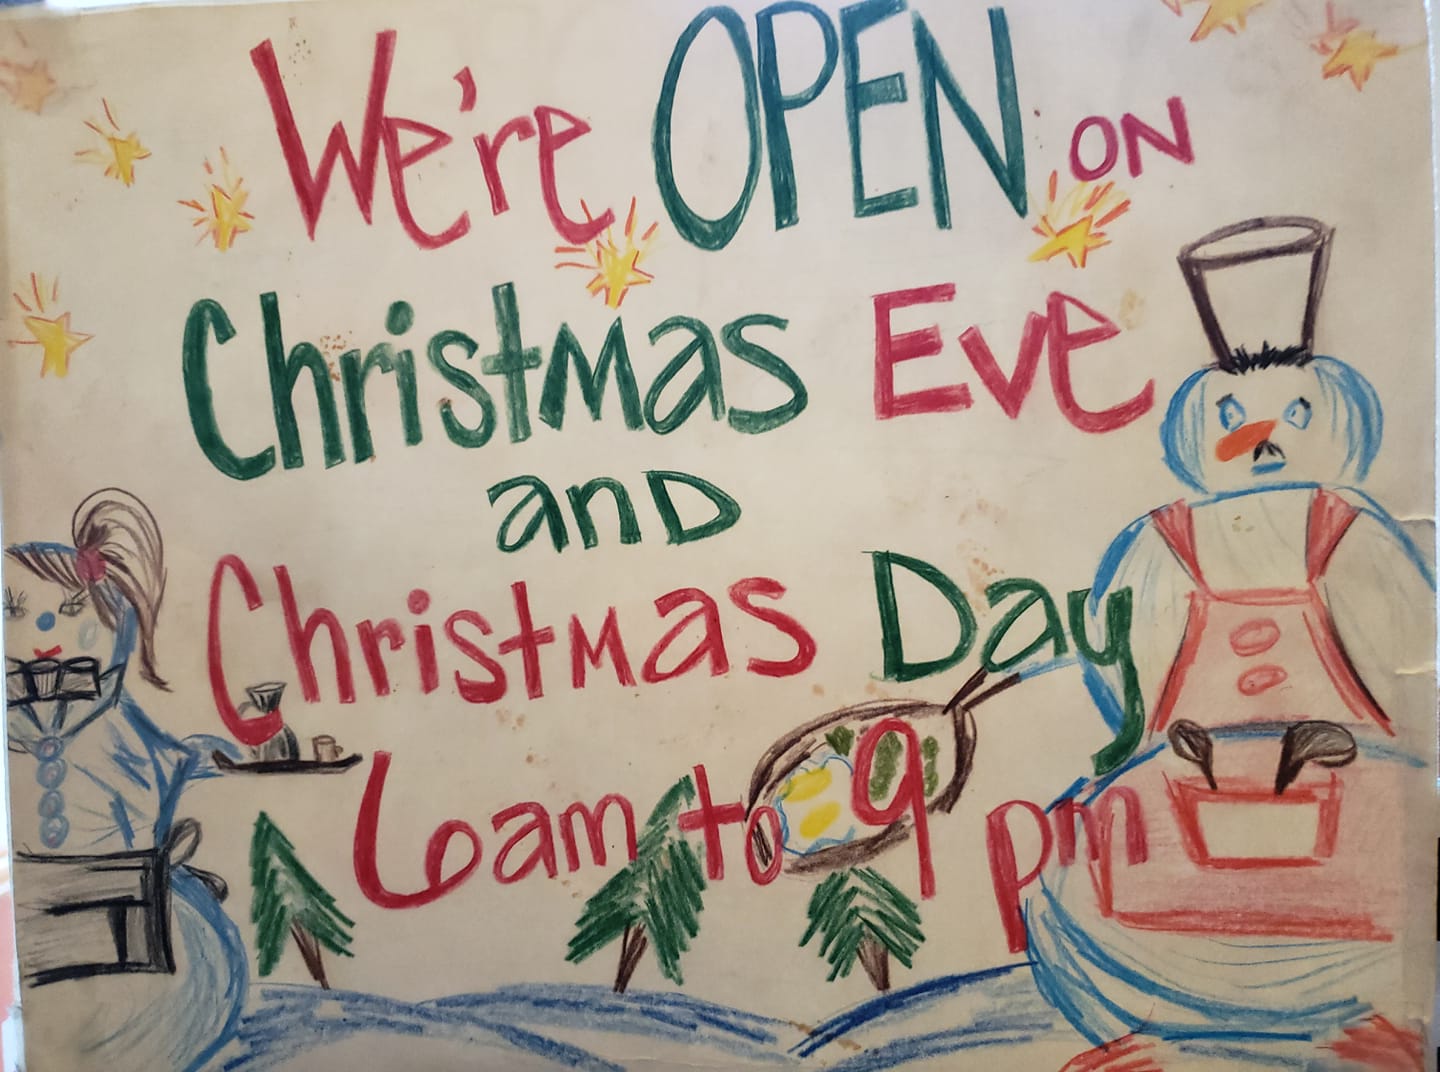 We're OPEN ON
Christmas Eve
and
Christmas Day
6am to 9 pm